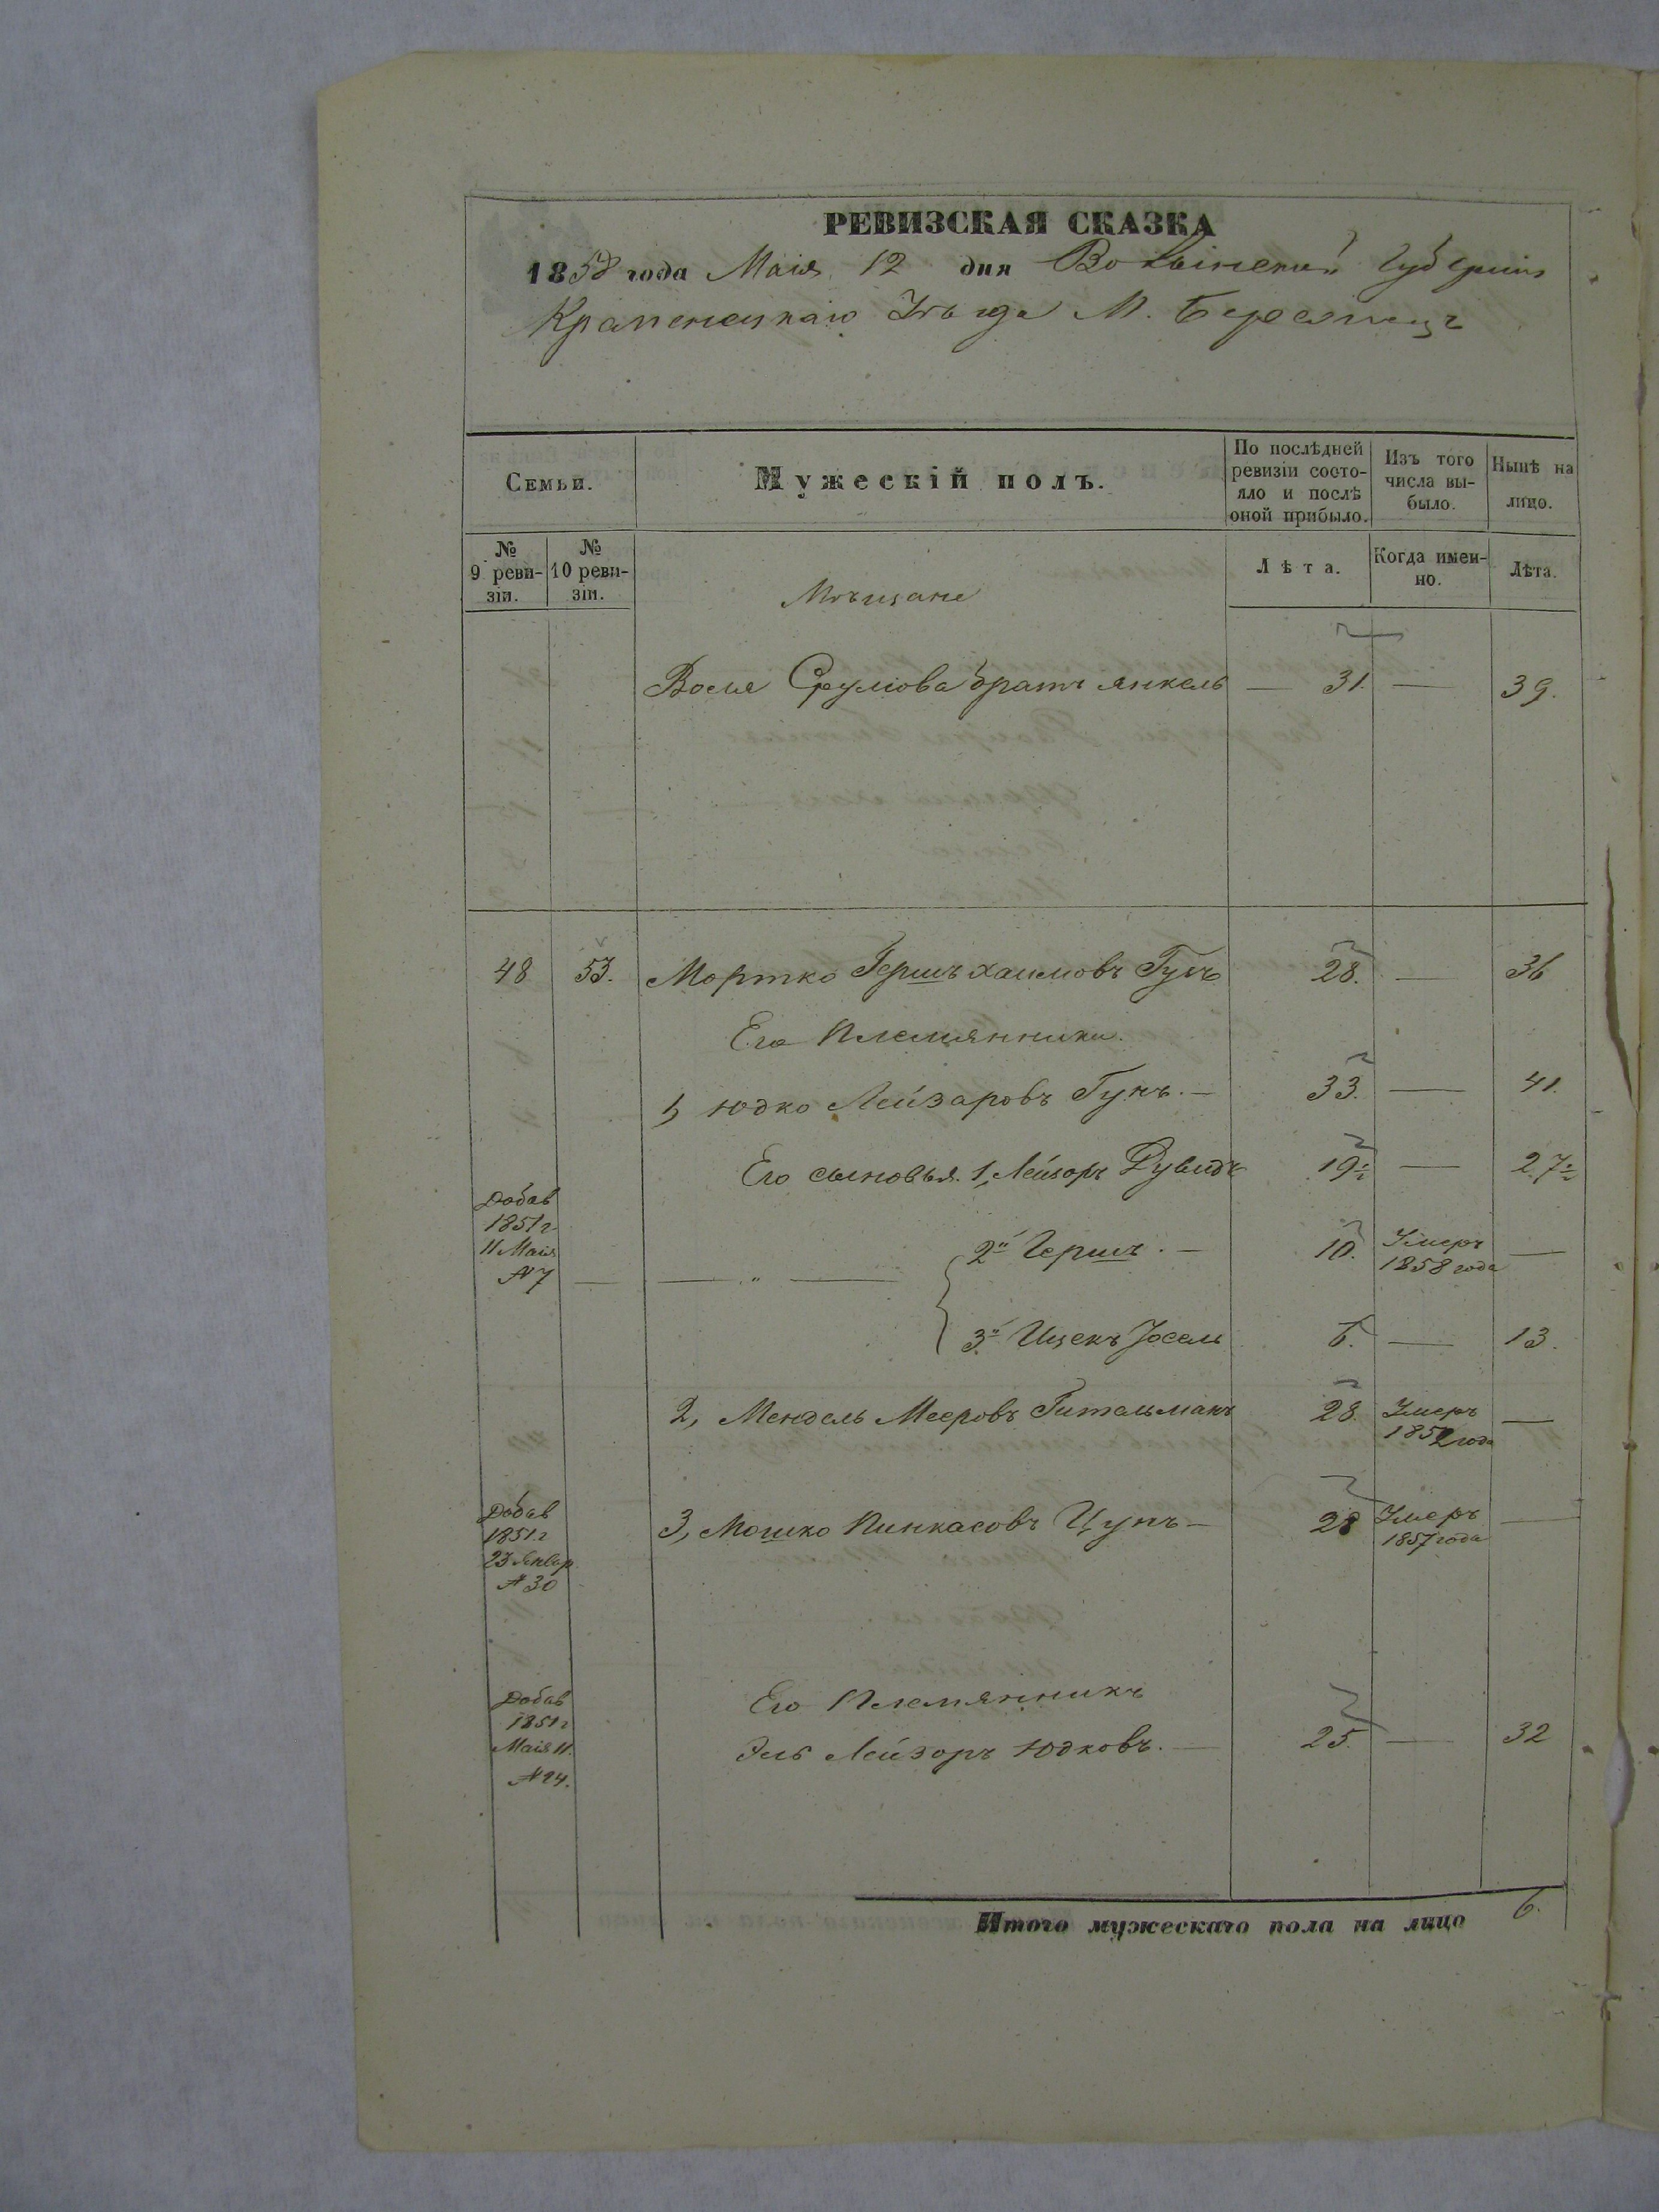 РЕВИЗСКАЯ СКАЗКА
1858 года Маія 12 дня Волынской Губерніи
Кременецкаго Уѣзда М. Бережець
Семьи.
Мужескій полъ.
По послѣдней ревизіи состо-
яло и послѣ
оной прибыло.
Изъ того
числа вы-
было.
Нынѣ на
лицо.
№
9 реви-
зіи.
№
10 реви-
зіи.
Лѣта.
Когда имен-
но.
Лѣта.
Мѣщане
Срулова братъ Янкель — 31. — 39.
48 53. Мортко Гершъ Хаимовъ Гукъ 28. — 36
Его Племянники.
1, Юдко Лейзаровъ Гукъ. — 33. — 41.
Его сыновья. 1, Лейзоръ Дувидъ 19½ — 27½
Добав
1851 г
11 Маія
№ 7
2й Гершъ. — 10. Умеръ
1858 года —
3й Ицекъ Іосель 6. — 13.
2, Мендель Мееровъ Гительманъ 28. Умеръ
1852 года —
Добав
1851 г
23 Январ
№ 30
3, Мошко Пинкасовъ Цупъ — 28 Умеръ
1857 года —
Добав
1851 г
Маія 11.
№ 24.
Его Племянникъ
Эль Лейзоръ Юдковъ. — 25. — 32
Итого мужескаго пола на лицо 6.